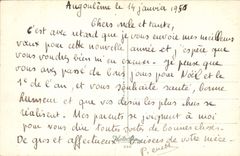 Angoulême le 14 janvier 1950
Chers oncle et tante,
C'est avec retard que je vous envoie mes meilleurs
vœux pour cette nouvelle année et j'espère que
vous voudrez bien m'en excuser. Je pense que
vous avez passé de bons jours pour Noël et le
1er de l'an, et vous souhaite santé, bonne
humeur et que vos désirs les plus chers se
réalisent. Mes parents se joignent à moi
pour vous dire toutes sortes de bonnes choses.
De gros et affectueux baisers de votre nièce.